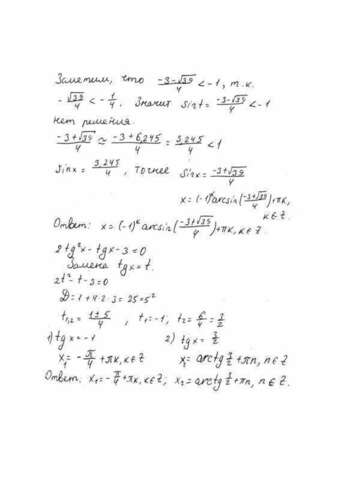 Заметим, что (-3-√39)/4 < -1, т.к.
-√39/4 < -1/4. Значит sin t = (-3-√39)/4 < -1
нет решения.
(-3+√39)/4 ≈ (-3+6,245)/4 = 3,245/4 < 1
sin x = 3,245/4, точнее sin x = (-3+√39)/4
x = (-1)^k arcsin((-3+√39)/4) + πk, k ∈ Z.
Ответ: x = (-1)^k arcsin((-3+√39)/4) + πk, k ∈ Z.
2tg²x - tgx - 3 = 0
Замена tgx = t.
2t² - t - 3 = 0
D = 1 + 4·2·3 = 25 = 5²
t₁,₂ = (1±5)/4, t₁ = -1, t₂ = 6/4 = 3/2
1) tgx = -1 2) tgx = 3/2
x₁ = -π/4 + πk, k ∈ Z x₂ = arctg 3/2 + πn, n ∈ Z
Ответ: x₁ = -π/4 + πk, k ∈ Z; x₂ = arctg 3/2 + πn, n ∈ Z.